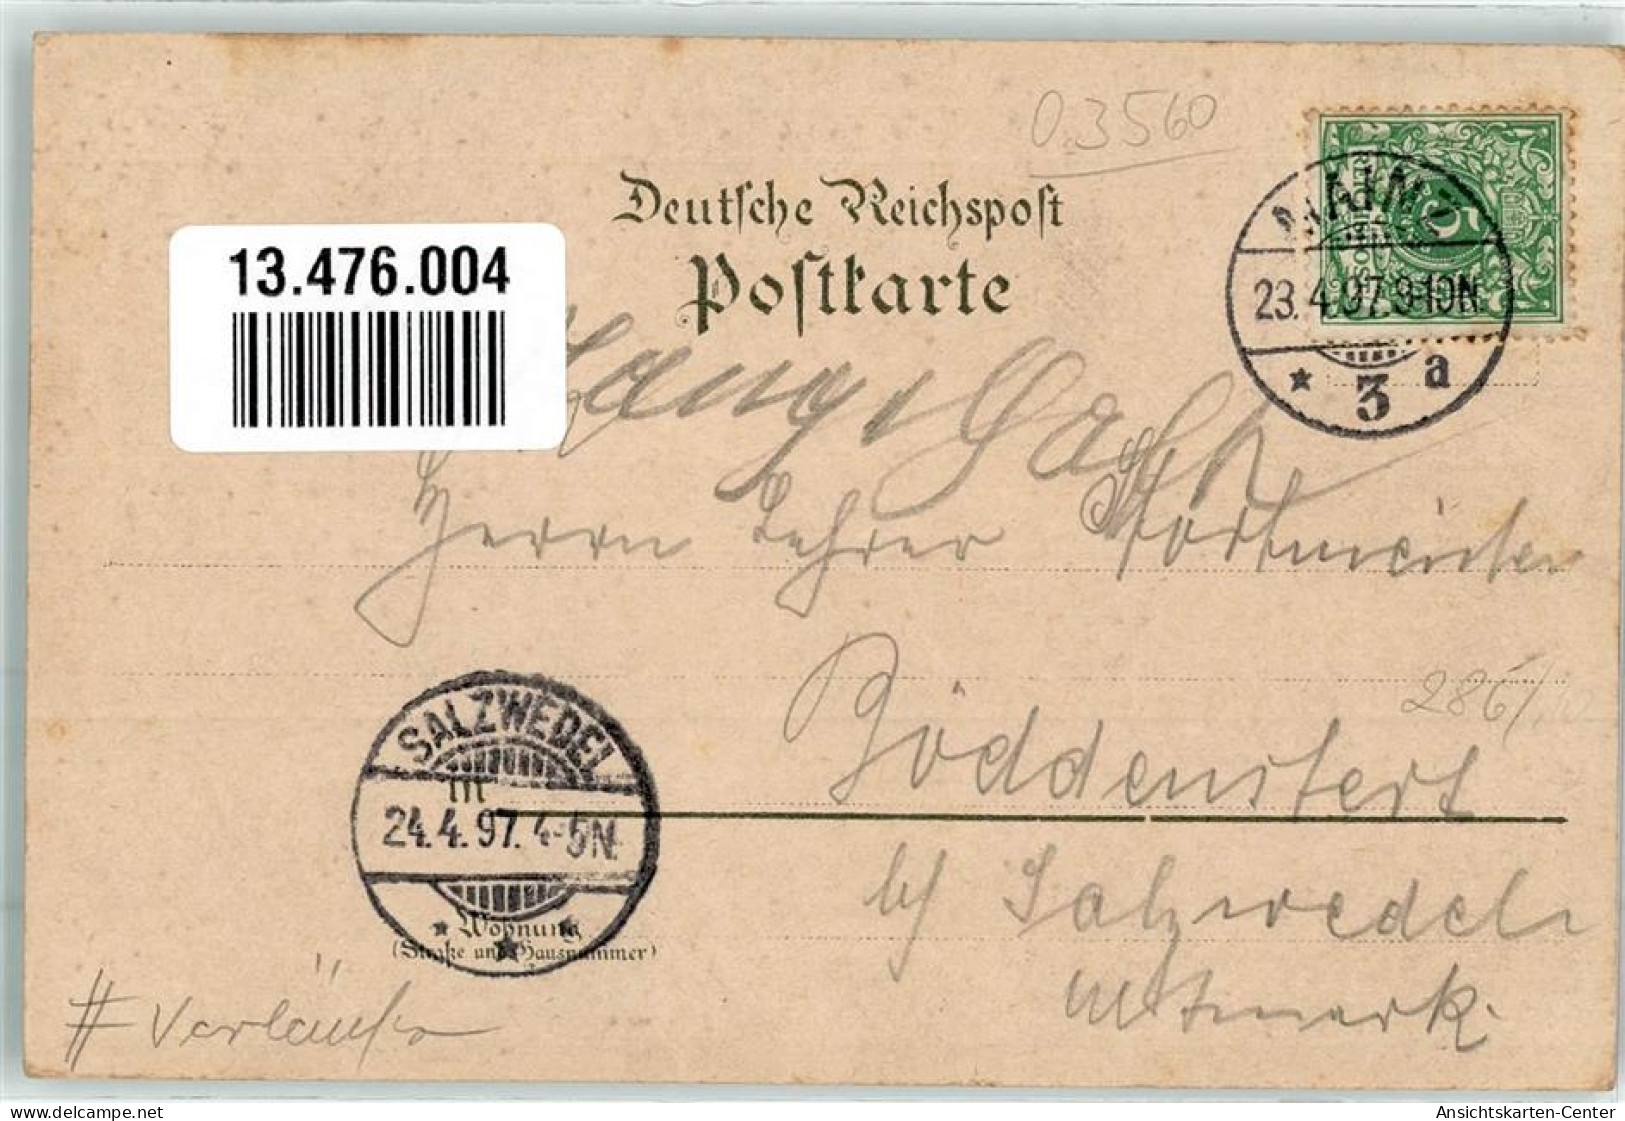 0.3560
Deutsche Reichspost
Postkarte
13.476.004
MAINZ
23.4.97.9-10N.
* 3 a
Herrn Lehrer
286/
Böddenstedt
SALZWEDEL
in
24.4.97.4-5N.
b/ Salzwedel
* Wohnung
(Straße und Hausnummer)
Altmark.
# Verläufer
www.delcampe.net
Ansichtskarten-Center